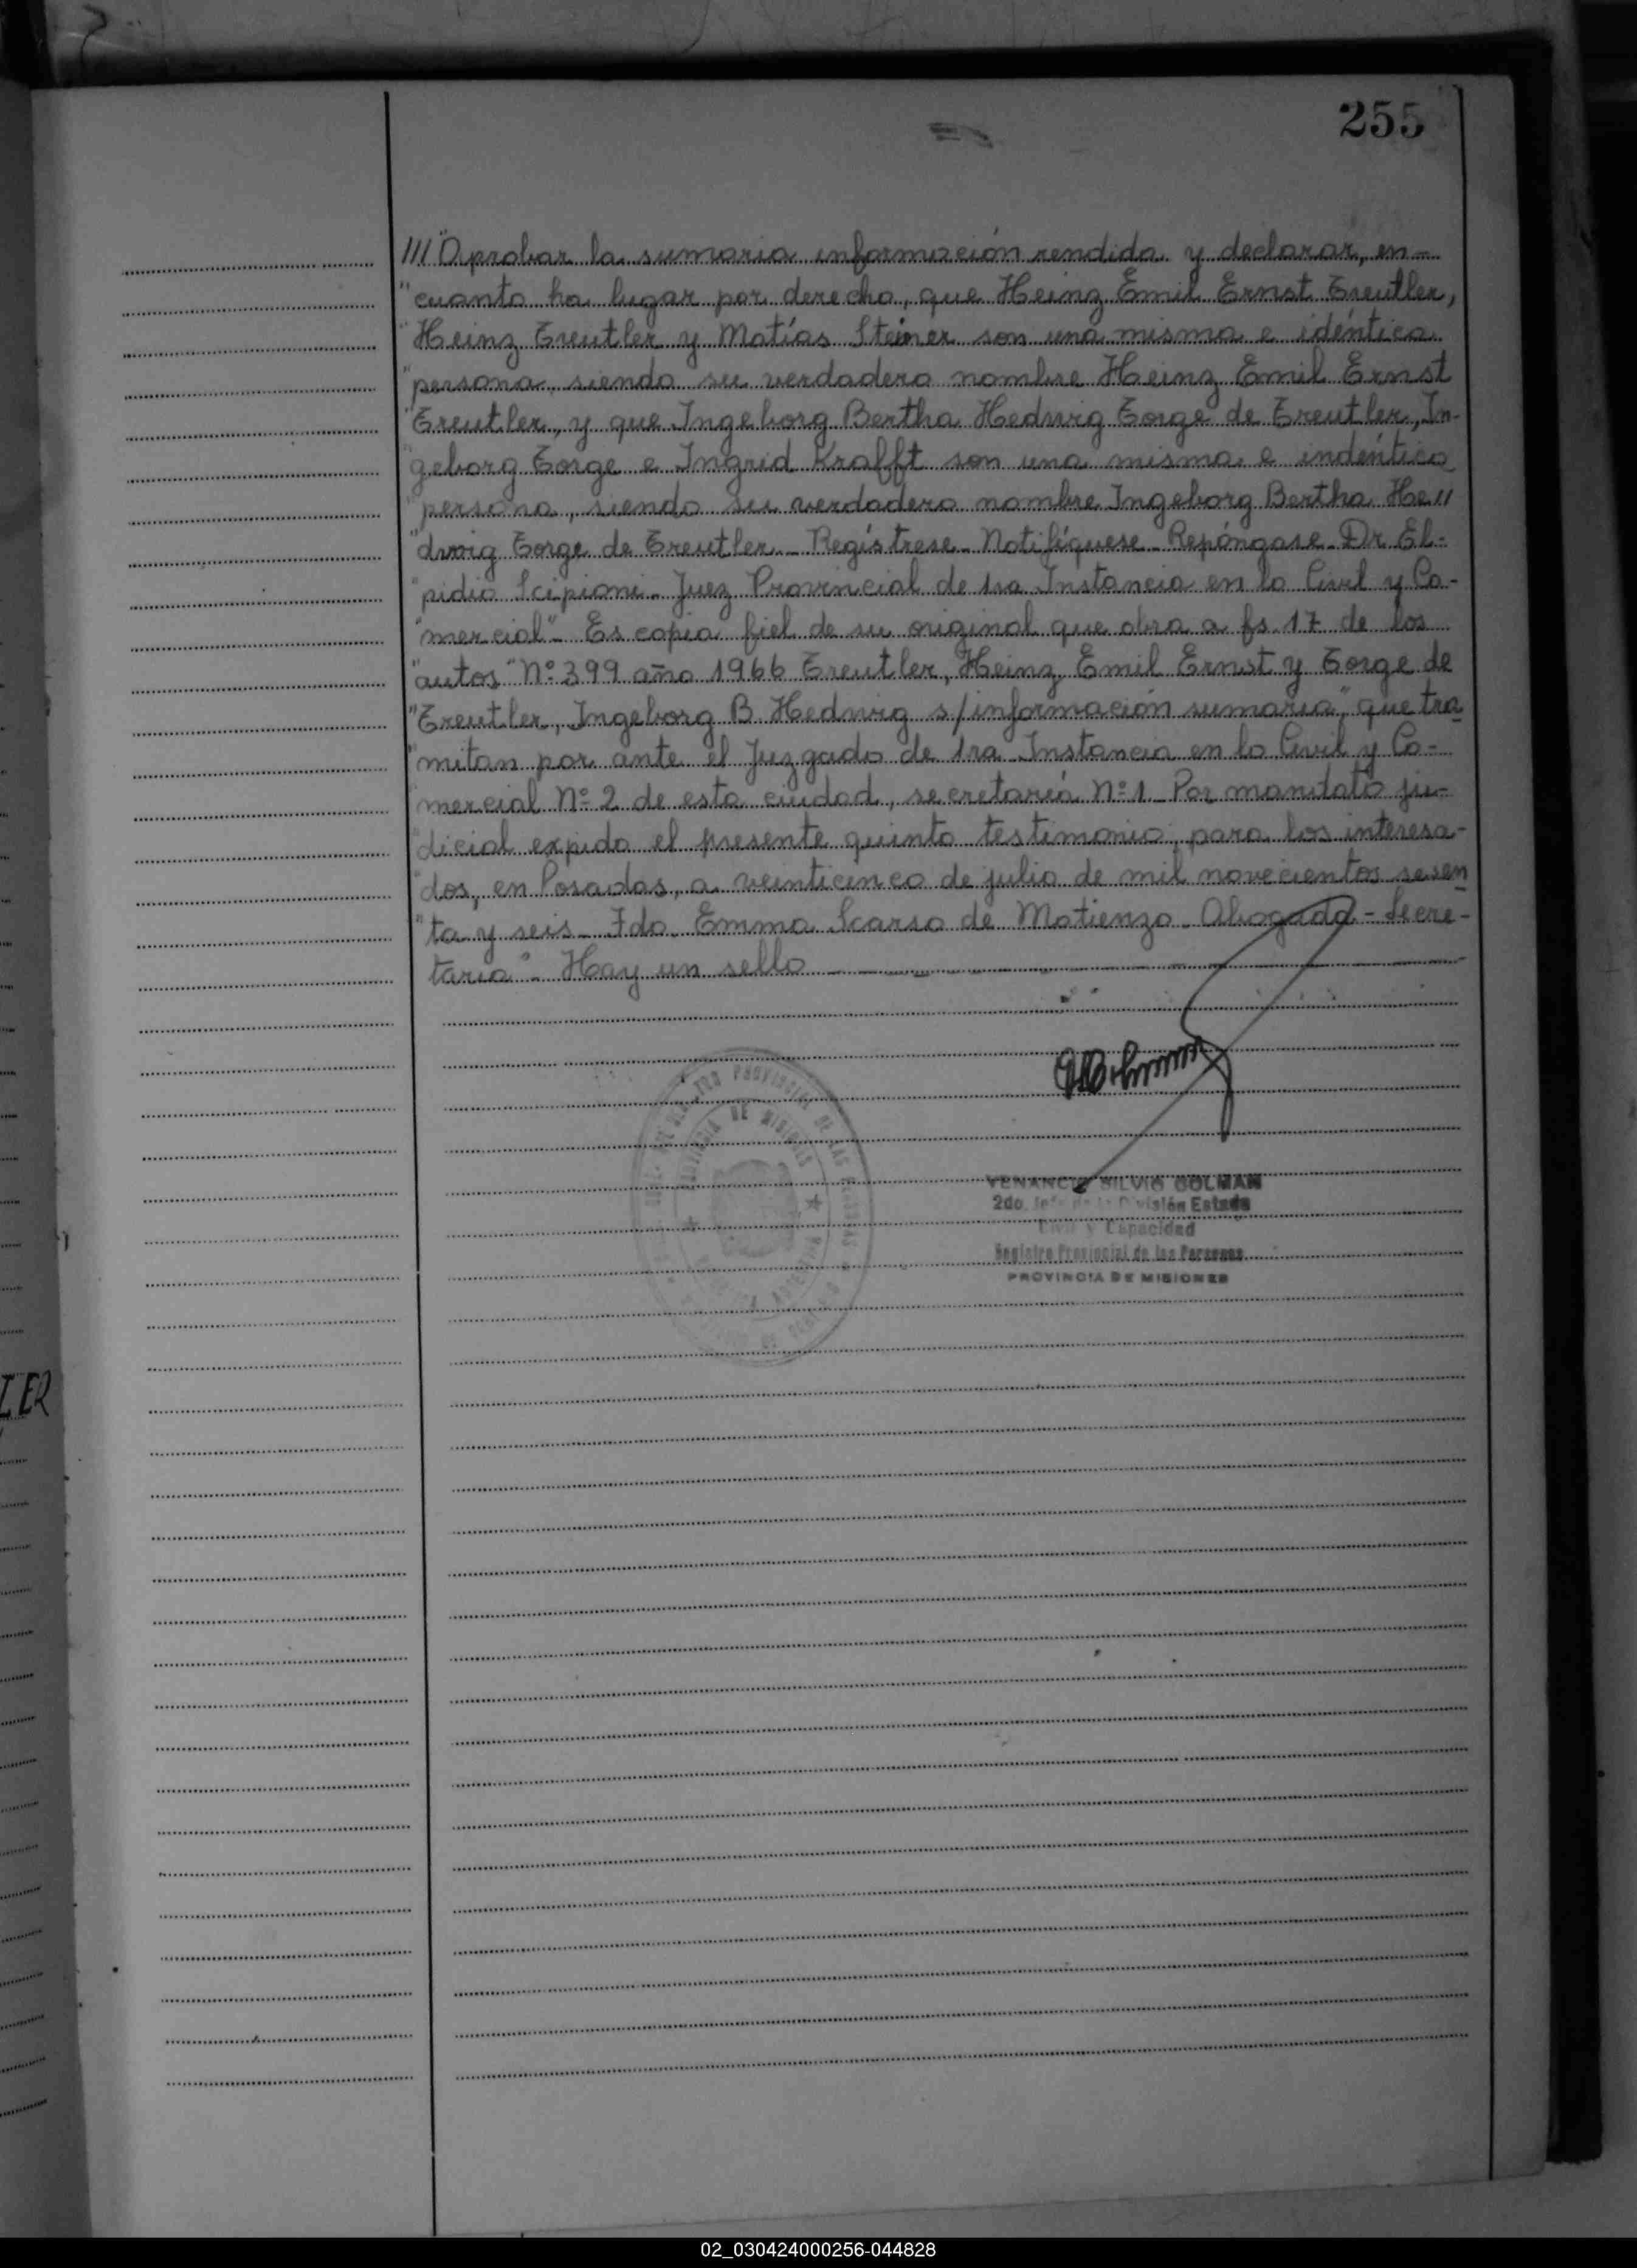 255
///"Aprobar la sumaria información rendida y declarar, en-
"cuanto ha lugar por derecho, que Heinz Emil Ernst Treutler,
"Heinz Treutler y Matías Steiner son una misma e idéntica
"persona, siendo su verdadero nombre Heinz Emil Ernst
"Treutler, y que Ingeborg Bertha Hedwig Torge de Treutler, In-
"geborg Torge e Ingrid Krafft son una misma e indéntica
"persona, siendo su verdadero nombre Ingeborg Bertha He//
"dwig Torge de Treutler_ Regístrese_ Notifíquese_ Repóngase_ Dr. El-
"pidio Scipioni_ Juez Provincial de 1ra Instancia en lo Civil y Co-
"mercial"_ Es copia fiel de su original que obra a fs 17 de los
"autos "Nº 399 año 1966 Treutler, Heinz Emil Ernst y Torge de
"Treutler, Ingeborg B. Hedwig s/información sumaria", que tra
"mitan por ante el Juzgado de 1ra Instancia en lo Civil y Co-
"mercial Nº 2 de esta ciudad, secretaría Nº 1_ Por mandato ju-
"dicial expido el presente quinto testimonio, para los interesa-
"dos, en Posadas, a veinticinco de julio de mil novecientos sesen
"ta y seis_ Fdo. Emma Scarso de Matienzo_ Abogada - Secre-
taria"_ Hay un sello
PROVINCIA DE MISIONES
VENANCIO SILVIO COLMAN
2do. Jefe de la División Estado
Civil y Capacidad
Registro Provincial de las Personas
PROVINCIA DE MISIONES
02_030424000256-044828